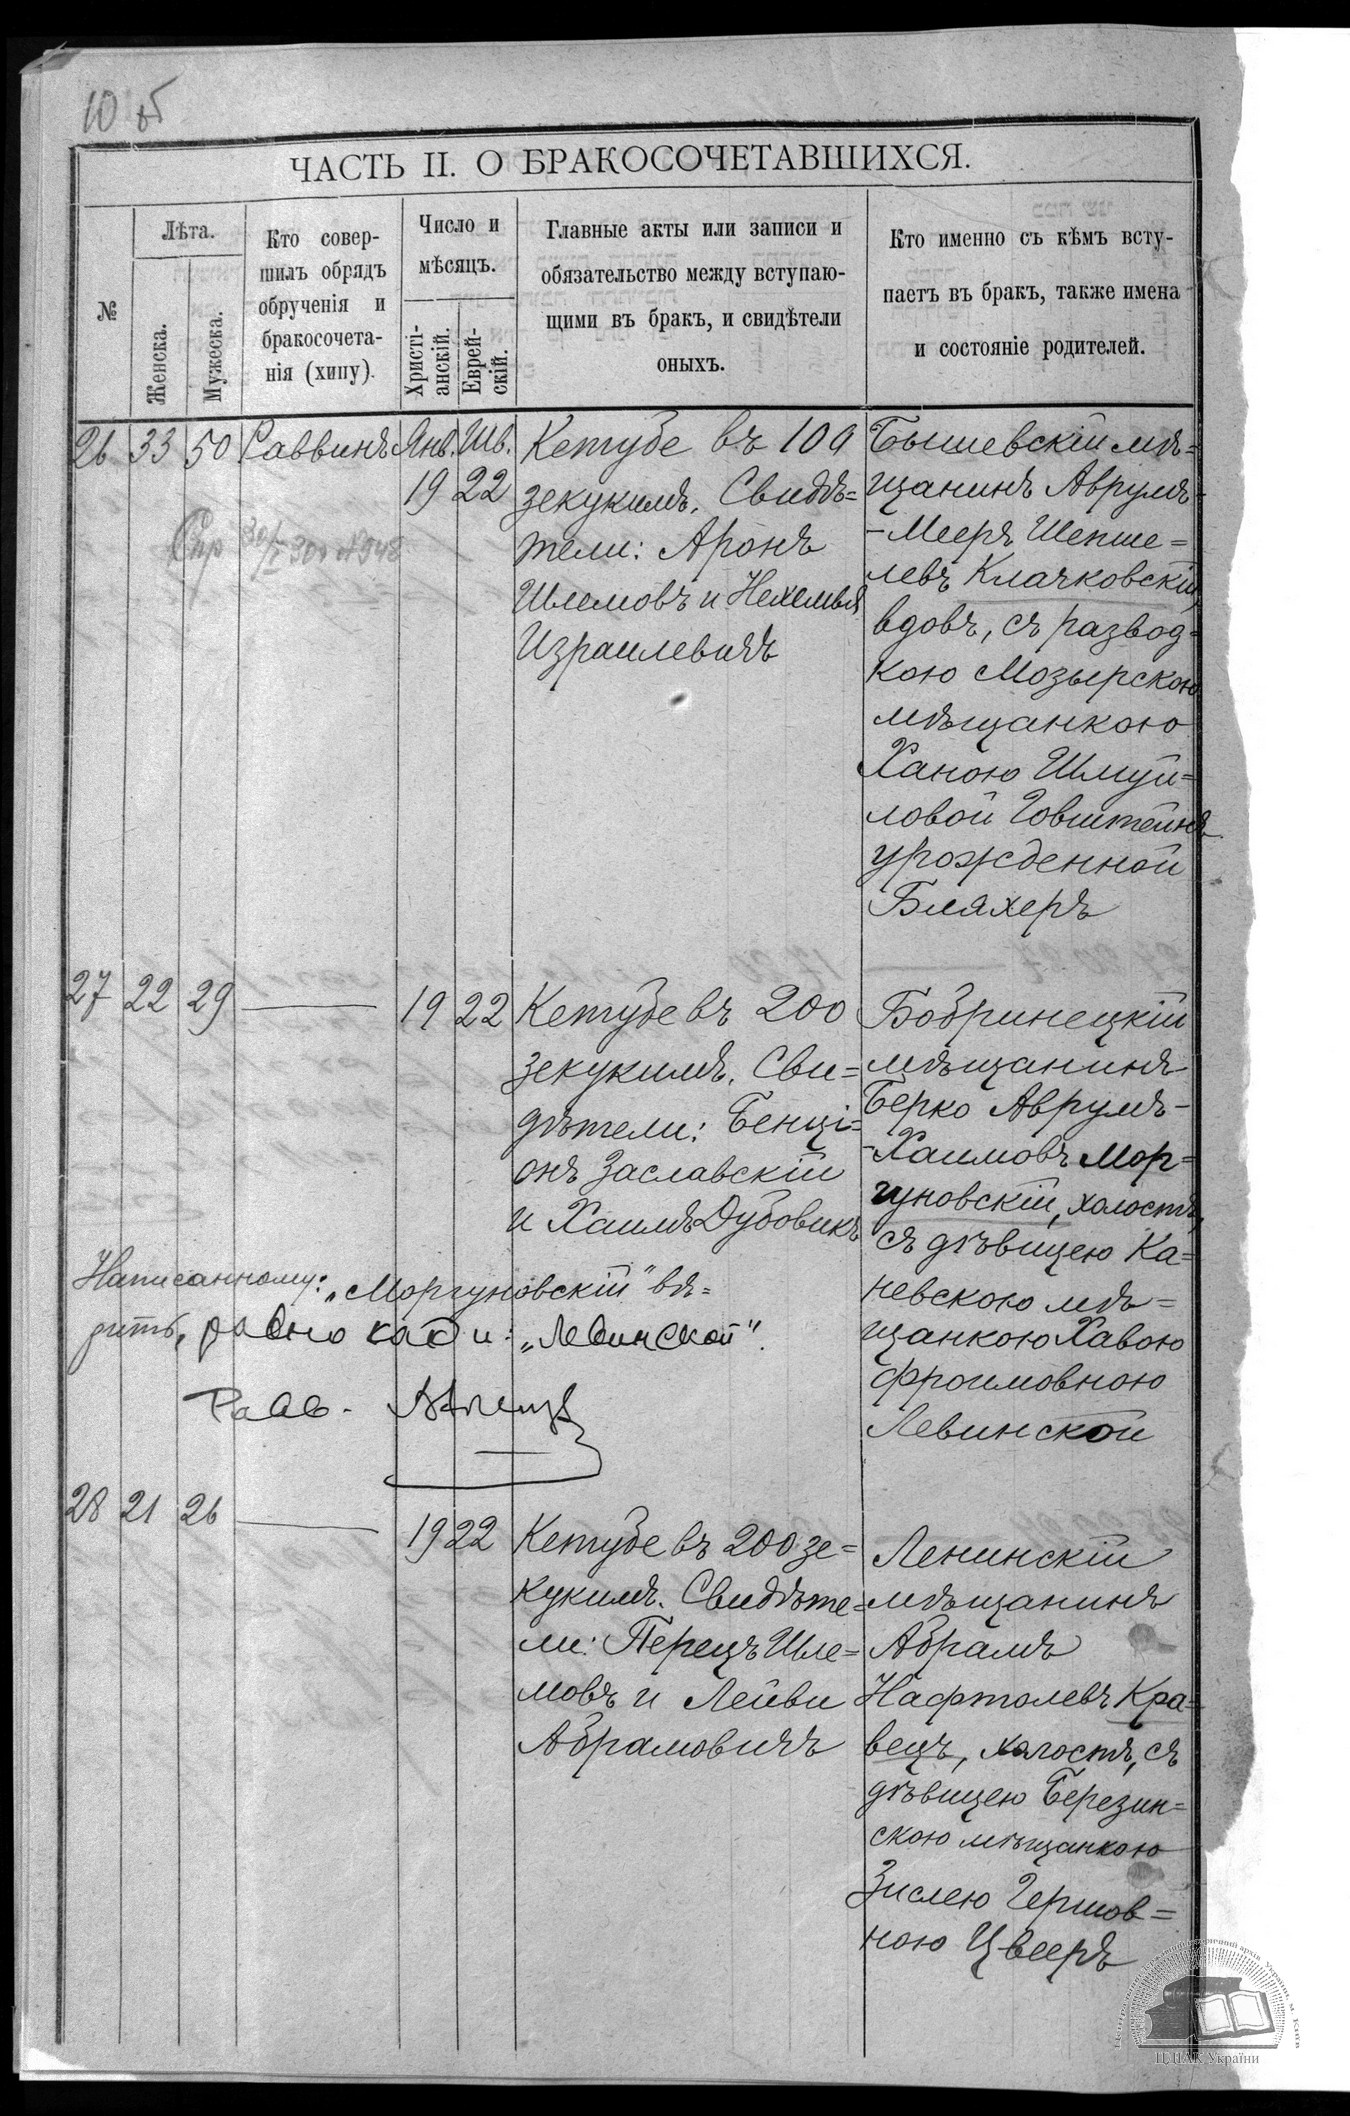 10 об
ЧАСТЬ II. О БРАКОСОЧЕТАВШИХСЯ.
№
Лѣта.
Женска.
Мужеска.
Кто совер-
шилъ обрядъ
обрученія и
бракосочета-
нія (хипу).
Число и
мѣсяцъ.
Христі-
анскій.
Еврей-
скій.
Главные акты или записи и
обязательство между вступаю-
щими въ бракъ, и свидѣтели
оныхъ.
Кто именно съ кѣмъ всту-
паетъ въ бракъ, также имена
и состояніе родителей.
26 33 50 Раввинъ Янв. Шв.
19 22
Кетубе въ 100
зекукимъ. Свидѣ=
тели: Аронъ
Шлемовъ и Нехемья
Израилевичъ
Бышевскій мѣ=
щанинъ Аврумъ-
-Мееръ Шепше=
левъ Клачковскій,
вдовъ, съ развод=
кою Мозырскою
мѣщанкою
Ханою Шмуй=
ловой Говштейнъ
урожденной
Бляхеръ
27 22 29 — 19 22
Кетубе въ 200
зекукимъ. Сви=
дѣтели: Бенці=
онъ Заславскій
и Хаимъ Дубовикъ
Бобринецкій
мѣщанинъ
Берко Аврумъ-
-Хаимовъ Мор=
гуновскій, холостъ,
съ дѣвицею Ка=
невскою мѣ=
щанкою Хавою
Фроимовною
Левинской
Написанному: „Моргуновскій" вѣ=
рить, равно как и: „Левинской".
Равв.
28 21 26 — 19 22
Кетубе въ 200 зе=
кукимъ. Свидѣте=
ли: Перецъ Шле=
мовъ и Лейви
Абрамовичъ
Ленинскій
мѣщанинъ
Абрамъ
Нафтолевъ Кра=
вецъ, холостъ, съ
дѣвицею Березин=
скою мѣщанкою
Зислею Гершов=
ною Цвееръ
ЦДІАК України